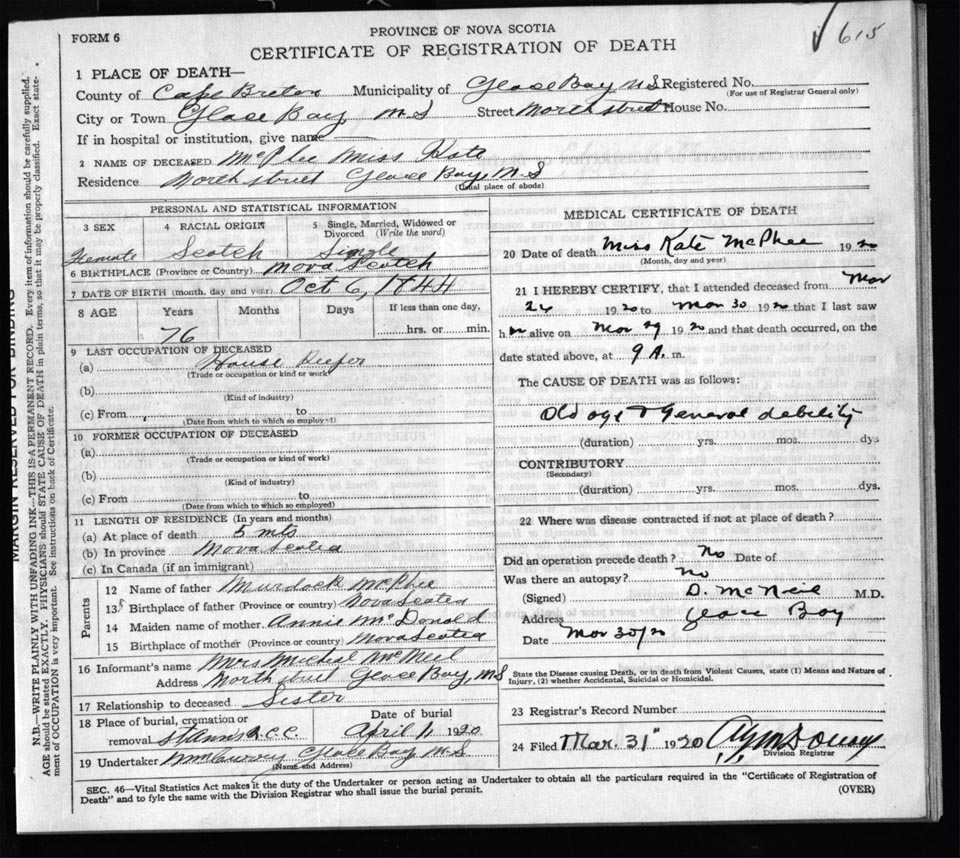 FORM 6
PROVINCE OF NOVA SCOTIA
615
CERTIFICATE OF REGISTRATION OF DEATH
1 PLACE OF DEATH—
County of Cape Breton Municipality of Glace Bay N S Registered No.
(For use of Registrar General only)
City or Town Glace Bay N S Street North street House No.
If in hospital or institution, give name
2 NAME OF DECEASED McPhee Miss Kate
Residence North street Glace Bay, N.S
(Usual place of abode)
PERSONAL AND STATISTICAL INFORMATION
3 SEX 4 RACIAL ORIGIN 5 Single, Married, Widowed or Divorced (Write the word)
Female Scotch Single
6 BIRTHPLACE (Province or Country) Nova Scotch
7 DATE OF BIRTH (month, day and year) Oct 6, 1844
8 AGE Years Months Days If less than one day,
76 hrs. or min.
9 LAST OCCUPATION OF DECEASED
(a) House Keeper
(Trade or occupation or kind of work)
(b)
(Kind of industry)
(c) From to
(Date from which to which so employed)
10 FORMER OCCUPATION OF DECEASED
(a)
(Trade or occupation or kind of work)
(b)
(Kind of industry)
(c) From to
(Date from which to which so employed)
11 LENGTH OF RESIDENCE (In years and months)
(a) At place of death 5 mts
(b) In province Nova Scotia
(c) In Canada (if an immigrant)
Parents
12 Name of father Murdock McPhee
13 Birthplace of father (Province or country) Nova Scotia
14 Maiden name of mother Annie McDonald
15 Birthplace of mother (Province or country) Nova Scotia
16 Informant's name Mrs Michel McNeil
Address North street Glace Bay, N S
17 Relationship to deceased Sister
18 Place of burial, cremation or removal St Anns R.C.C. Date of burial April 1, 1920
19 Undertaker Glace Bay N.S
(Name and Address)
MEDICAL CERTIFICATE OF DEATH
20 Date of death Miss Kate McPhee 1920
(Month, day and year)
21 I HEREBY CERTIFY, that I attended deceased from Mar
24 1920 to Mar 30 1920 that I last saw
h er alive on Mar 29 1920 and that death occurred, on the
date stated above, at 9 A. m.
The CAUSE OF DEATH was as follows:
Old age & General debility
(duration) yrs. mos. dys
CONTRIBUTORY
(Secondary)
(duration) yrs. mos. dys.
22 Where was disease contracted if not at place of death?
Did an operation precede death? No Date of
Was there an autopsy? No
(Signed) D. McNeil M.D.
Address Glace Bay
Date Mar 30/20
State the Disease causing Death, or in death from Violent Causes, state (1) Means and Nature of Injury, (2) whether Accidental, Suicidal or Homicidal.
23 Registrar's Record Number
24 Filed Mar. 31" 1920
Division Registrar
SEC. 46—Vital Statistics Act makes it the duty of the Undertaker or person acting as Undertaker to obtain all the particulars required in the "Certificate of Registration of
Death" and to fyle the same with the Division Registrar who shall issue the burial permit.
(OVER)
MARGIN RESERVED FOR BINDING
N.B.—WRITE PLAINLY WITH UNFADING INK—THIS IS A PERMANENT RECORD. Every item of information should be carefully supplied.
AGE should be stated EXACTLY. PHYSICIANS should STATE CAUSE OF DEATH in plain terms, so that it may be properly classified. Exact state-
ment of OCCUPATION is very important. See instructions on back of Certificate.